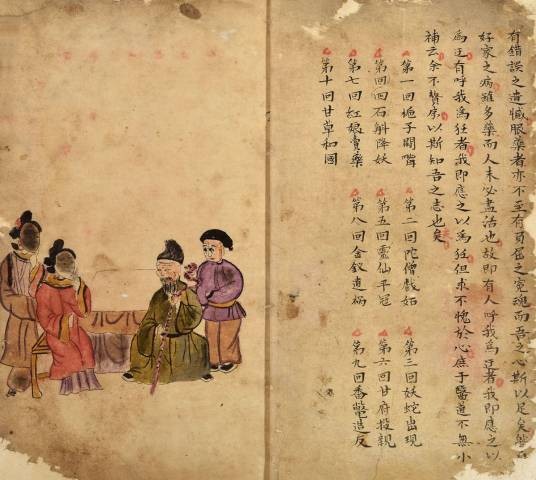 有錯誤之遺憾服藥者亦不至有負屈之冤魂而吾之心斯以足矣然
好家之病雖多藥而人未必盡活也故即有人呼我為迂者我即應之以
為迂有呼我為狂者我即應之以為狂但求不愧於心庶于醫道不無小
補云余不贅序以斯知吾之志也矣
第一回梔子鬧嘴 第二回陀僧戲姑 第三回妖蛇出現
第四回石斛降妖 第五回靈仙平冠 第六回甘府投親
第七回紅娘賣藥 第八回金釵遺禍 第九回番鱉造反
第十回甘草和國